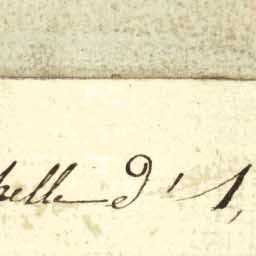 helle d'1,